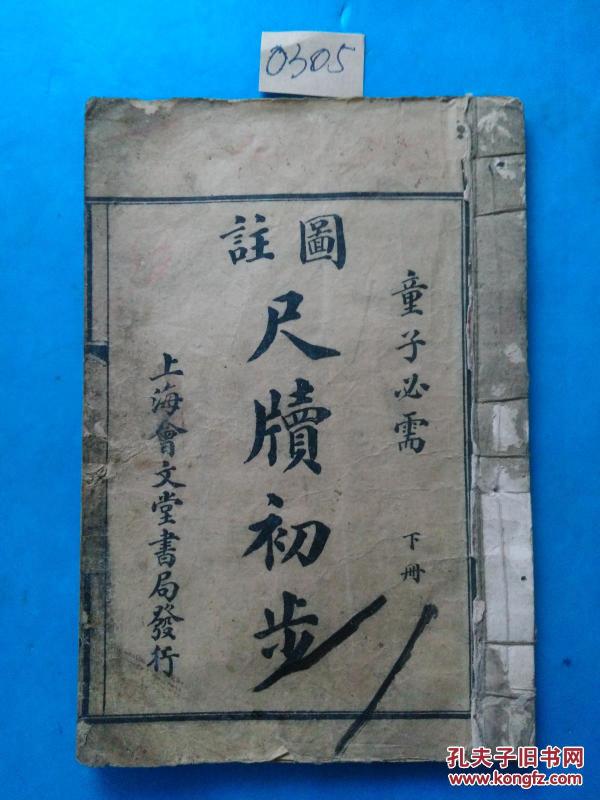 0305
童子必需
下冊
圖註
尺牘初步
上海會文堂書局發行
孔夫子旧书网
www.kongfz.com